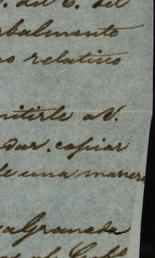 . del C. del
rbalmente
o relativo
nitirle a V.
dar, copiar
le una manera
a Granada